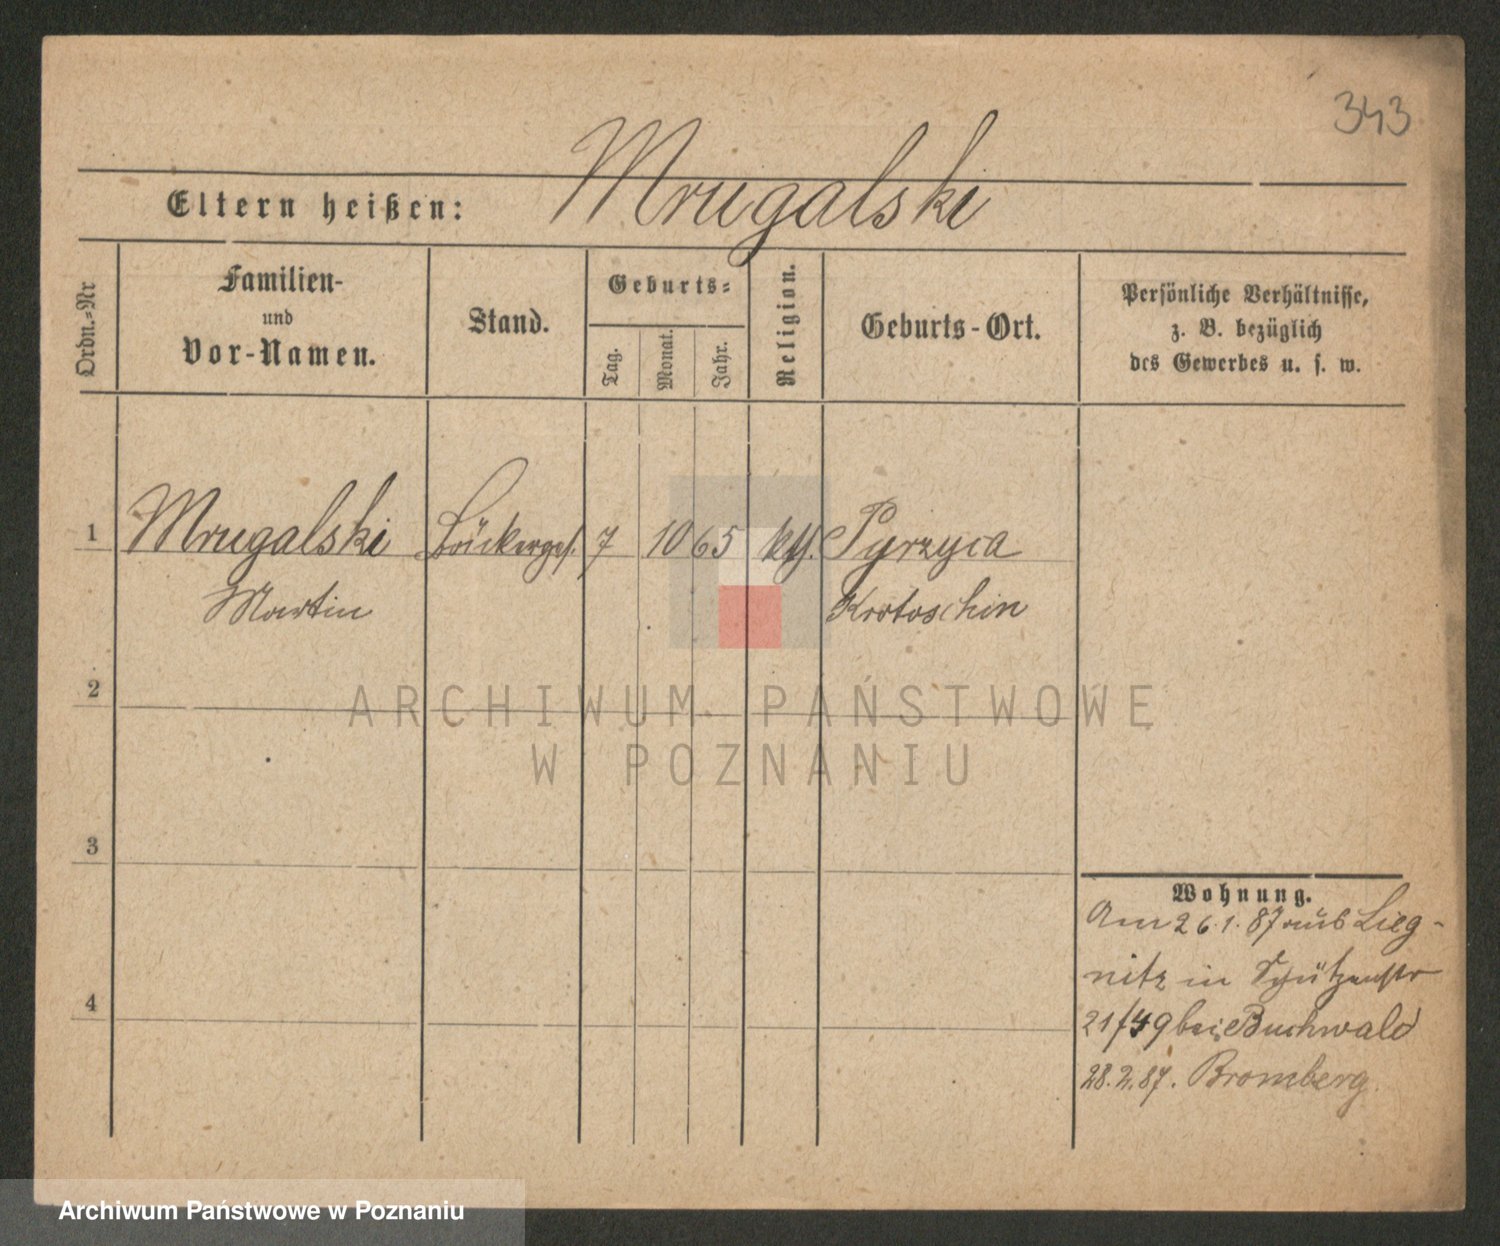 343
Mrugalski
Eltern heißen:
Ordn.=Nr
Familien-
und
Vor-Namen.
Stand.
Geburts=
Tag.
Monat.
Jahr.
Religion.
Geburts-Ort.
Persönliche Verhältnisse,
z. B. bezüglich
des Gewerbes u. s. w.
1 Mrugalski Bäckerges. 7 10 65 kth. Pyrzyca
Martin Krotoschin
2
3
4
Wohnung.
Am 26.1.87 aus Lieg-
nitz in Schützenstr
21/49 bei Buchwald
28.2.87. Bromberg.
ARCHIWUM PAŃSTWOWE
W POZNANIU
Archiwum Państwowe w Poznaniu